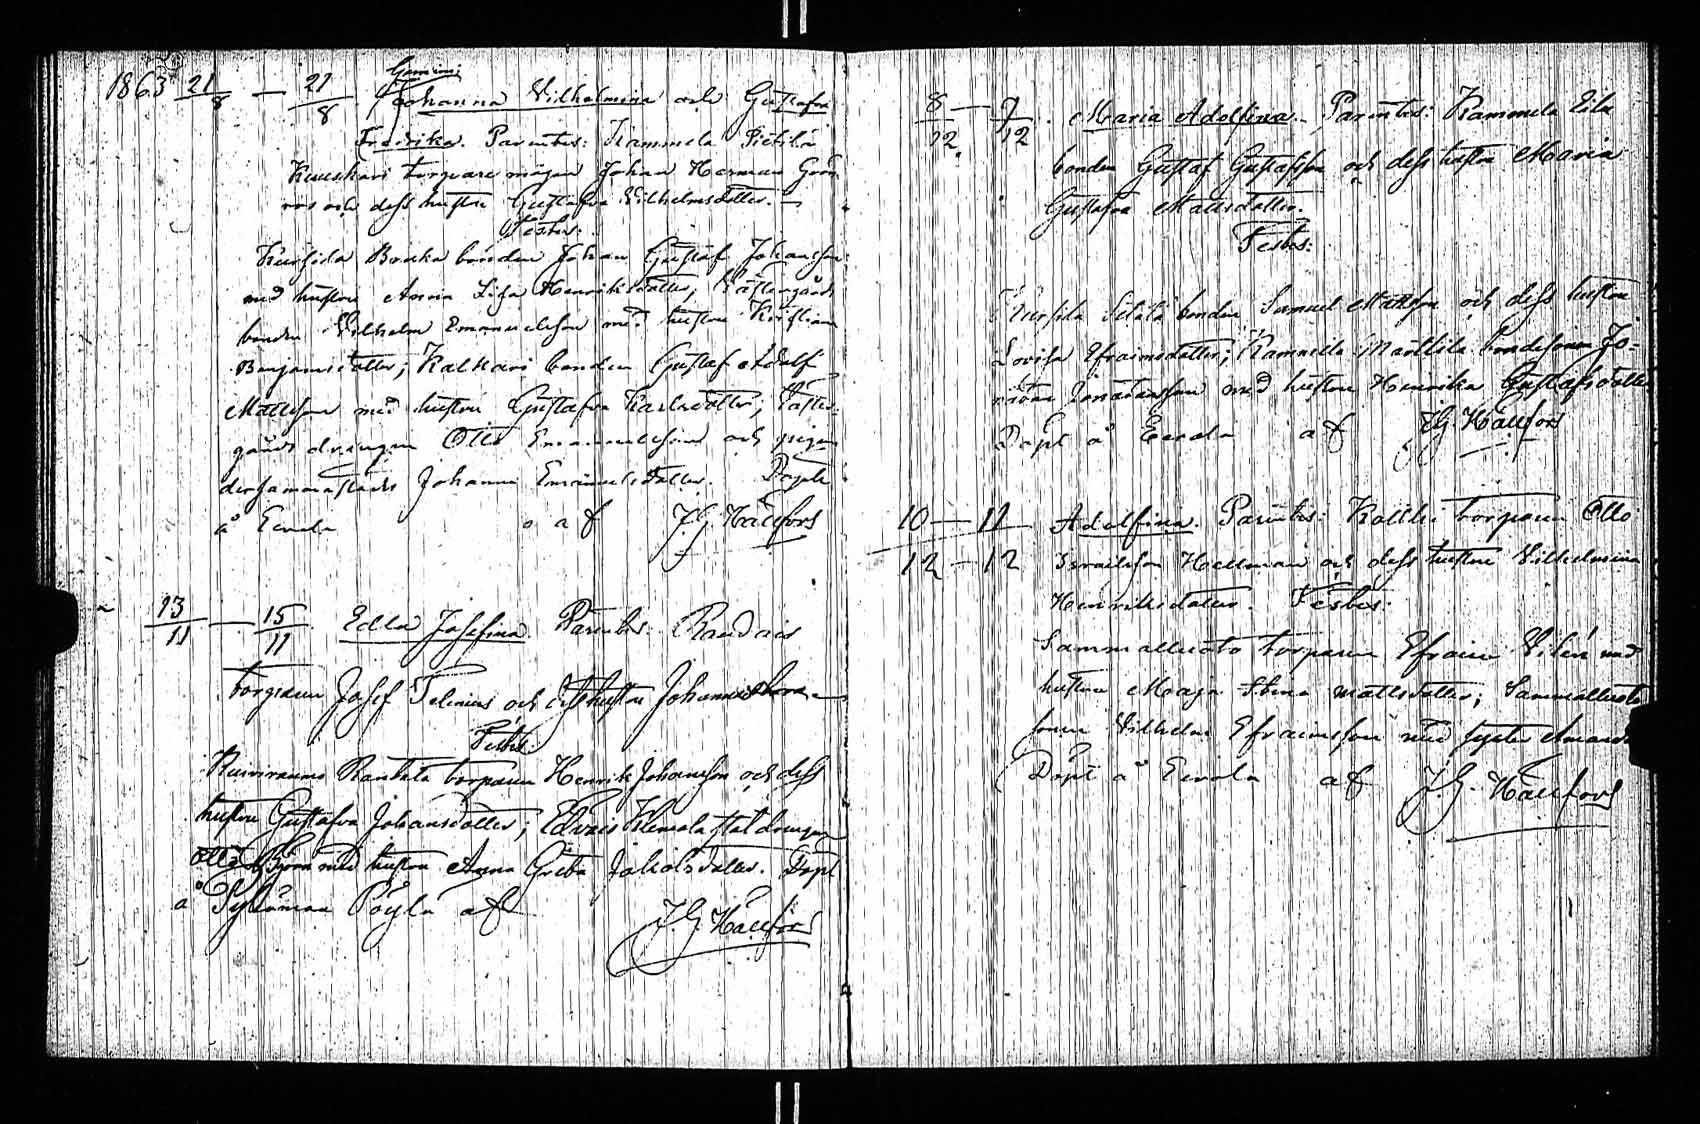 Gemini:
1863 21/8 — 21/8 Johanna Vilhelmina och Gustafva
Fredrika. Parentes: Kammela Pietilä
torpare mågen Johan Herman Grön
roos och dess hustru Gustafva Vilhelmsdotter.
Testes:
bonden Johan Gustaf Johansson
med hustru Anna Lisa Henriksdotter; Västergårds
bonden Vilhelm Emanuelsson med hustru Kristiana
Benjamisdotter; Kalhari bonden Gustaf Adolf
Mattsson med hustru Gustafva Karlsdotter; Väster-
gårds drängen Otto Emanuelsson och pigan
dersammastädes Johanna Emanuelsdotter. Döpte
å Eerola af J.G. Hällfors
13/11 — 15/11 Edla Josefina. Parentes:
torparen Josef Telenius och dess hustru Johanna
Testes:
Rantala torparen Henrik Johansson och dess
hustru Gustafva Johansdotter; Klemola statdrengen
Otto Björn med hustru Anna Greta Jakobsdotter. Döpt
å Pöylä af
J.G. Hällfors
8/12 — 9/12. Maria Adolfina. Parentes: Kammela Eila
bonden Gustaf Gustafsson och dess hustru Maria
Gustafva Mattsdotter.
Testes:
bonden Samuel Mattsson och dess hustru
Lovisa Efraimsdotter; Kammela Marttila bondesonen Jo-
natan Jonatansson med hustru Henrika Gustafsdotter
Döpt å Eerola af J.G. Hällfors
10/12 — 11/12 Adolfina. Parentes: torparen Otto
Israelsson Hellman och dess hustru Vilhelmina
Henriksdotter. Testes:
Sammalluoto torparen Efraim Vilén med
hustru Maja Stina Mattsdotter; Sammalluoto
sonen Vilhelm Efraimsson med syster Amanda
Döpt å Eerola af J.G. Hällfors